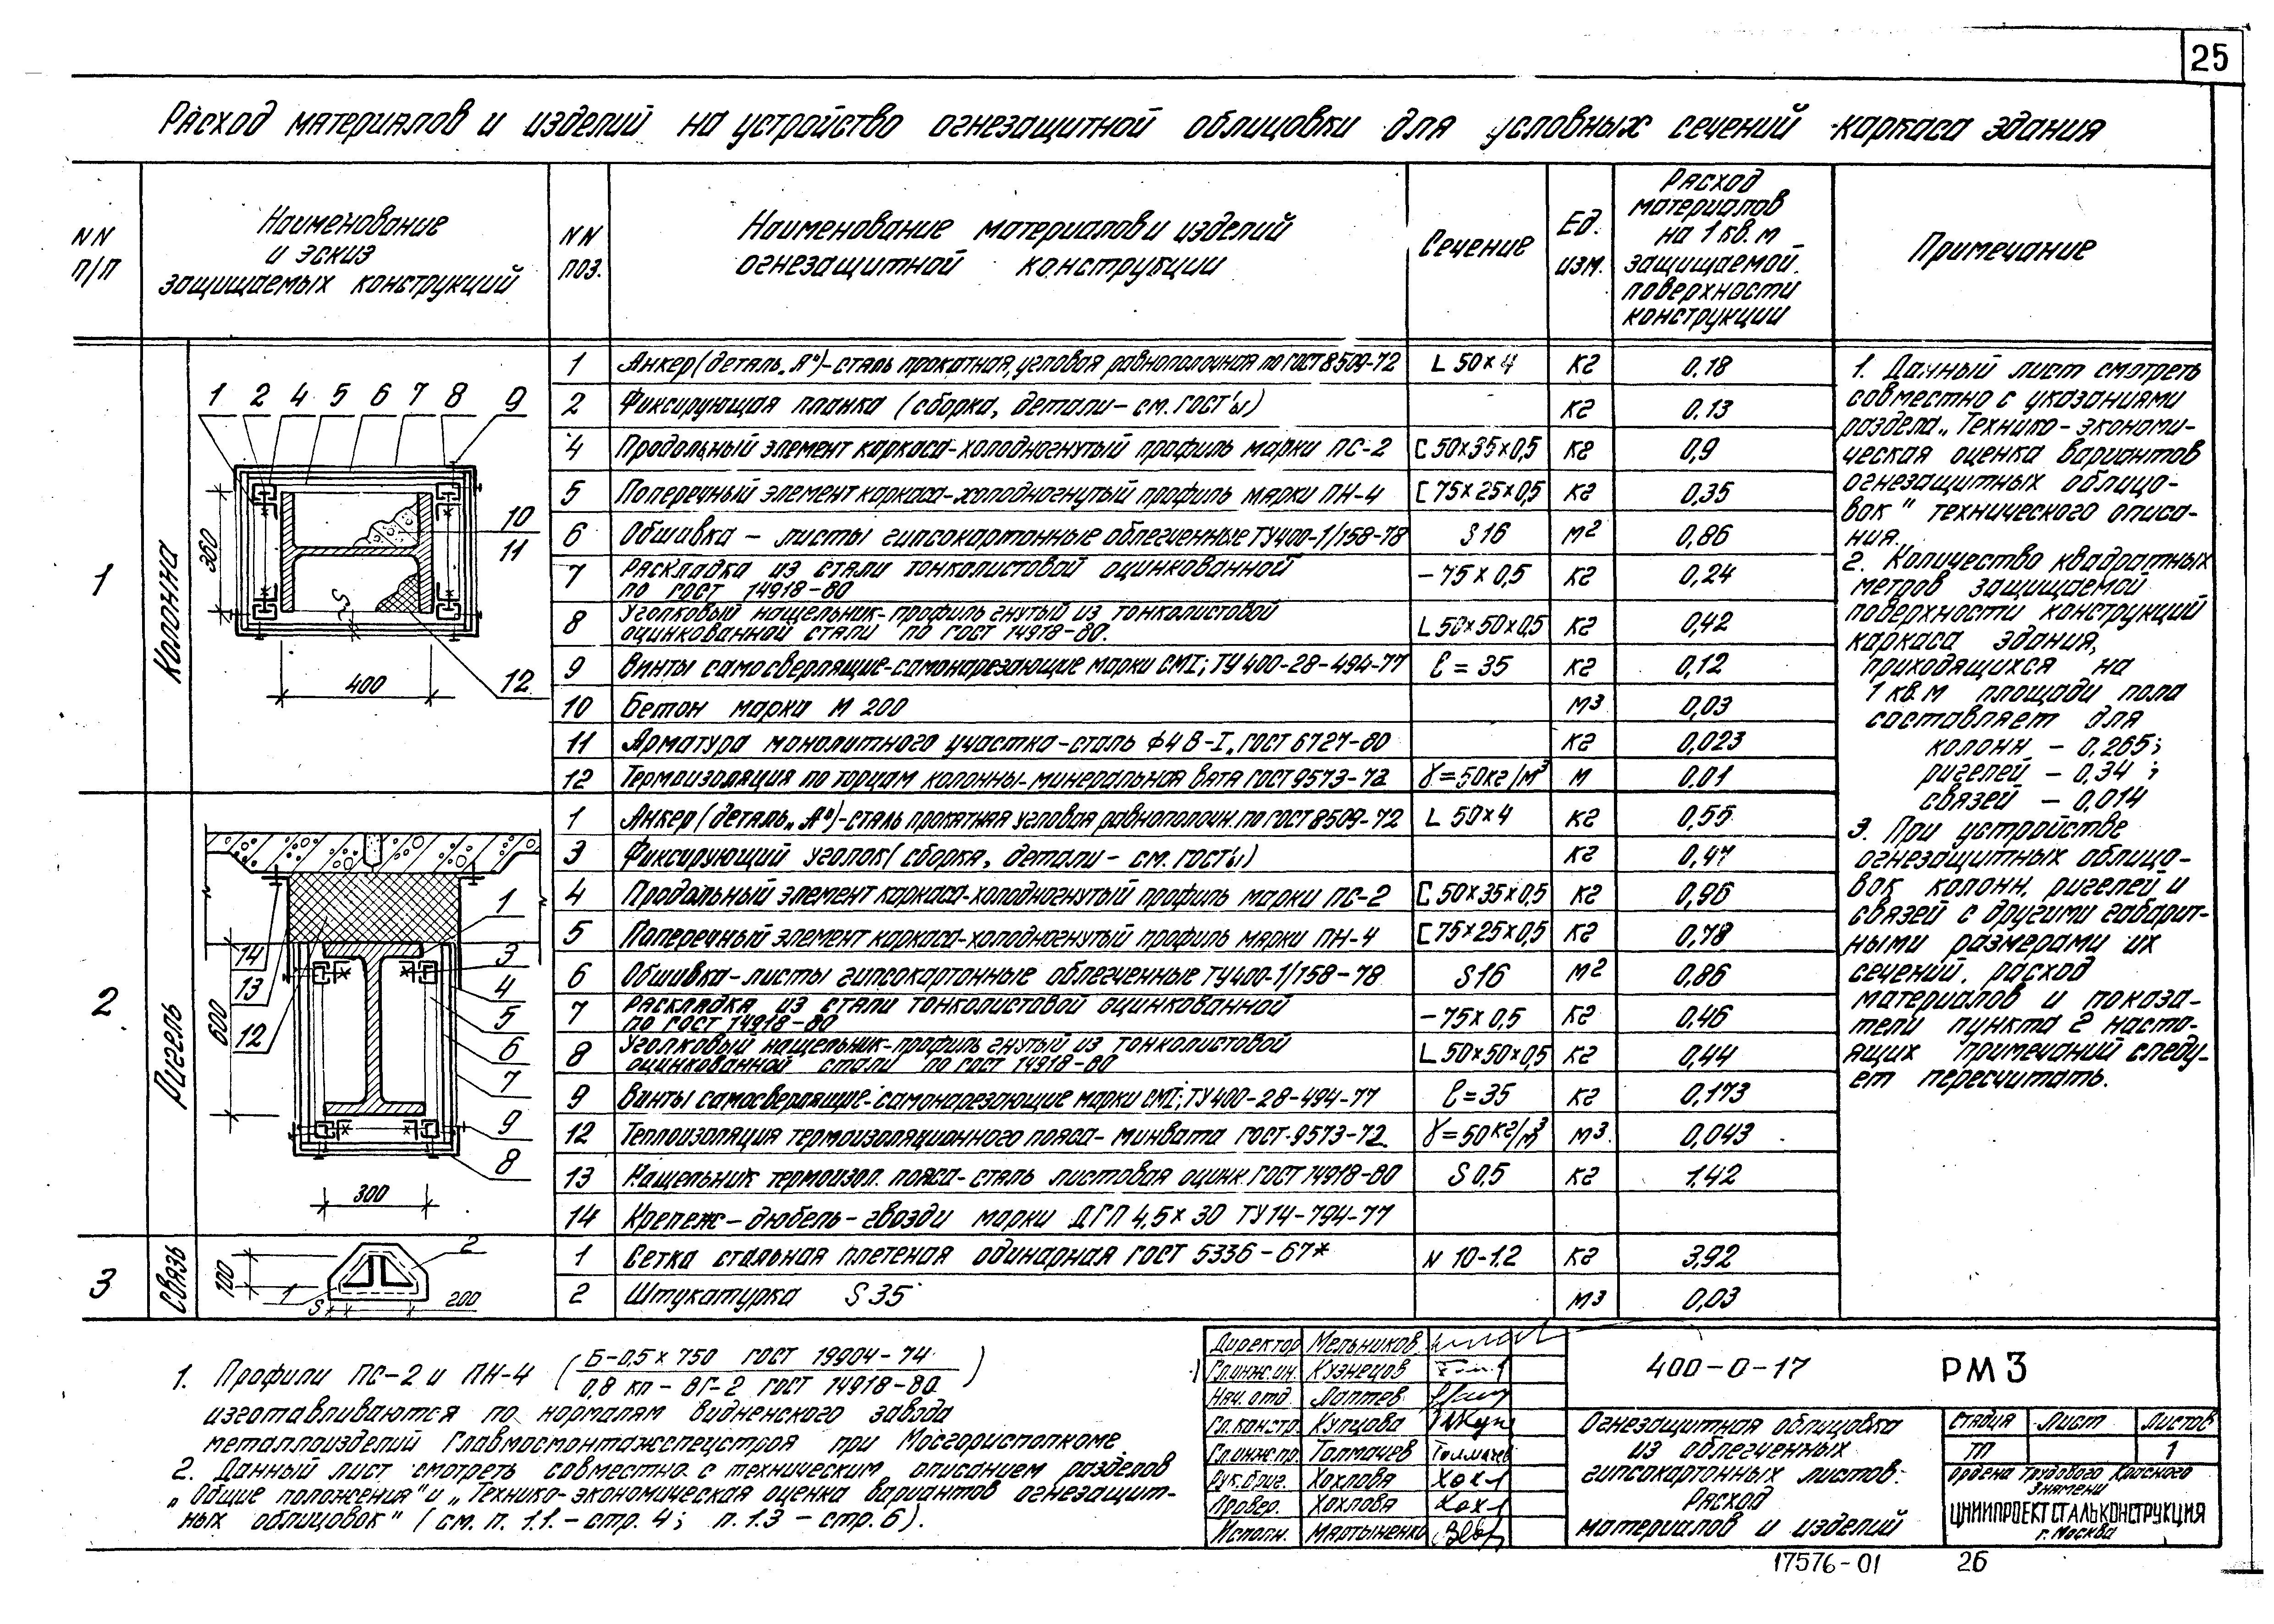 25
Расход материалов и изделий на устройство огнезащитной облицовки для условных сечений каркаса здания
NN п/п
Наименование и эскиз защищаемых конструкций
NN поз.
Наименование материалов и изделий огнезащитной конструкции
Сечение
Ед. изм.
Расход материалов на 1 кв.м защищаемой поверхности конструкции
Примечание
1
Колонна
1 2 4 5 6 7 8 9
10
11
12
360
S
400
1 Анкер (деталь „А") - сталь прокатная, угловая равнополочная по ГОСТ 8509-72 L 50×4 кг 0,18
2 Фиксирующая планка (сборка, детали - см. ГОСТ'ы) кг 0,13
4 Продольный элемент каркаса-холодногнутый профиль марки ПС-2 [ 50×35×0,5 кг 0,9
5 Поперечный элемент каркаса-холодногнутый профиль марки ПН-4 [ 75×25×0,5 кг 0,35
6 Обшивка - листы гипсокартонные облегченные ТУ400-1/158-78 S16 м2 0,86
7 Раскладка из стали тонколистовой оцинкованной
по ГОСТ 14918-80 - 75×0,5 кг 0,24
8 Уголковый нащельник-профиль гнутый из тонколистовой
оцинкованной стали по ГОСТ 14918-80. L 50×50×0,5 кг 0,42
9 Винты самосверлящие-самонарезающие марки СМI; ТУ400-28-494-77 ℓ=35 кг 0,12
10 Бетон марки М 200 м3 0,03
11 Арматура монолитного участка-сталь ф4 В-I, ГОСТ 6727-80 кг 0,023
12 Термоизоляция по торцам колонны-минеральная вата ГОСТ 9573-72 γ=50кг/м3 м 0.01
2
Ригель
1
3
4
5
6
7
9
8
14
13
12
600
300
1 Анкер (деталь „А") - сталь прокатная угловая равнополочн. по ГОСТ 8509-72 L 50×4 кг 0,55
3 Фиксирующий уголок (сборка, детали - см. ГОСТ'ы) кг 0,47
4 Продольный элемент каркаса-холодногнутый профиль марки ПС-2 [ 50×35×0,5 кг 0,96
5 Поперечный элемент каркаса-холодногнутый профиль марки ПН-4 [ 75×25×0,5 кг 0,78
6 Обшивка-листы гипсокартонные облегченные ТУ400-1/158-78 S16 м2 0,86
7 Раскладка из стали тонколистовой оцинкованной
по ГОСТ 14918-80 - 75×0,5 кг 0,46
8 Уголковый нащельник-профиль гнутый из тонколистовой
оцинкованной стали по ГОСТ 14918-80 L 50×50×0,5 кг 0,44
9 Винты самосверлящие-самонарезающие марки СМI; ТУ400-28-494-77 ℓ=35 кг 0,173
12 Теплоизоляция термоизоляционного пояса-минвата ГОСТ-9573-72. γ=50кг/м3 м3 0,043
13 Нащельник термоизол. пояса-сталь листовая оцинк. ГОСТ 14918-80 S 0,5 кг 1.42
14 Крепеж-дюбель-гвозди марки ДГП 4,5×30 ТУ14-794-77
3
Связь
2
1
100
S
200
1 Сетка стальная плетеная одинарная ГОСТ 5336-67* N 10-1.2 кг 3,92
2 Штукатурка S 35 м3 0,03
1. Данный лист смотреть
совместно с указаниями
раздела „Технико-экономи-
ческая оценка вариантов
огнезащитных облицо-
вок" технического описа-
ния.
2. Количество квадратных
метров защищаемой
поверхности конструкций
каркаса здания,
приходящихся на
1 кв.м площади пола
составляет для
колонн - 0,265;
ригелей - 0,34;
связей - 0,014
3. При устройстве
огнезащитных облицо-
вок колонн, ригелей и
связей с другими габарит-
ными размерами их
сечений, расход
материалов и показа-
тели пункта 2 насто-
ящих примечаний следу-
ет пересчитать.
1. Профили ПС-2 и ПН-4 (Б-0,5×750 ГОСТ 19904-74 / 0,8 кп-ВГ-2 ГОСТ 14918-80)
изготавливаются по нормалям Видненского завода
металлоизделий Главмосмонтажспецстроя при Мосгорисполкоме.
2. Данный лист смотреть совместно с техническим описанием разделов
„Общие положения" и „Технико-экономическая оценка вариантов огнезащит-
ных облицовок" (см. п. 1.1. - стр. 4; п. 1.3 - стр. 6).
Директор Мельников
Гл.инж.ин. Кузнецов
Нач. отд. Лаптев
Гл.констр. Купцова
Гл.инж.пр. Толмачев
Рук.бриг. Хохлова
Провер. Хохлова
Исполн. Мартыненко
400-0-17 РМ3
Огнезащитная облицовка
из облегченных
гипсокартонных листов.
Расход
материалов и изделий
Стадия Лист Листов
ТП 1
Ордена Трудового Красного
Знамени
ЦНИИПРОЕКТСТАЛЬКОНСТРУКЦИЯ
г. Москва
17576-01 26